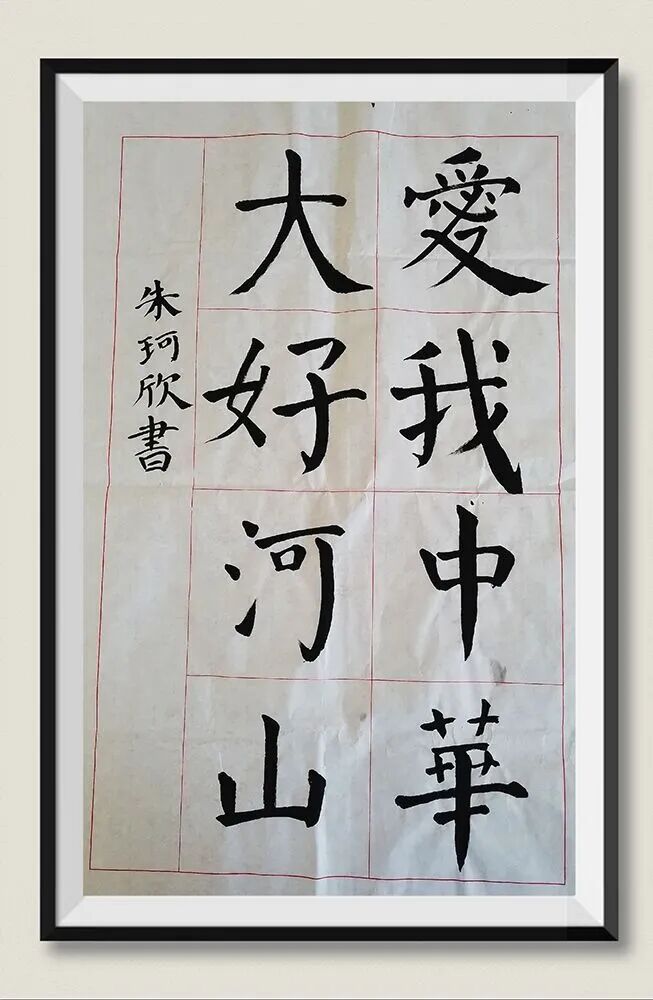 愛我中華
大好河山
朱珂欣書